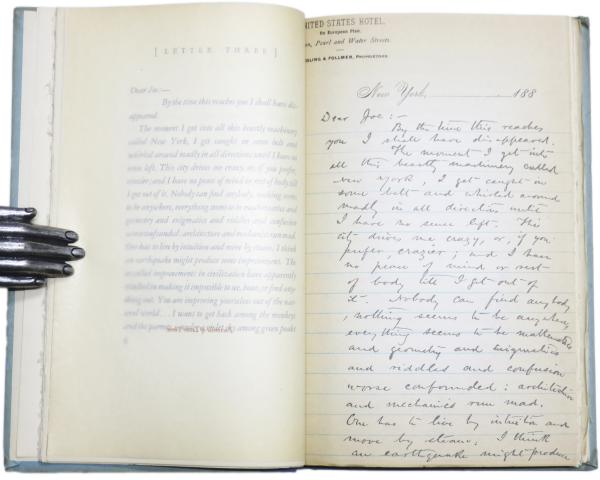 [ LETTER THREE ]
Dear Joe:—
By the time this reaches you I shall have dis-
appeared.
The moment I got into all this beastly machinery
called New York, I got caught in some belt and
whirled around madly in all directions until I have no
sense left. This city drives me crazy, or, if you prefer,
crazier; and I have no peace of mind or rest of body till
I get out of it. Nobody can find anybody, nothing seems
to be anywhere, everything seems to be mathematics and
geometry and enigmatics and riddles and confusion
worse confounded: architecture and mechanics run mad.
One has to live by intuition and move by steam. I think
an earthquake might produce some improvement. The
so-called improvements in civilization have apparently
resulted in making it impossible to see, hear, or find any-
thing out. You are improving yourselves out of the nat-
ural world... I want to get back among the monkeys
and the parrots, under a violet sky among green peaks
6
UNITED STATES HOTEL.
On European Plan.
Pearl and Water Streets.
& FOLLMER, PROPRIETORS
New York, 188
Dear Joe:—
By the time this reaches
you I shall have disappeared.
The moment I got into
all this beastly machinery called
New York, I got caught in
some belt and whirled around
madly in all directions until
I have no sense left. This
city drives me crazy, or, if you
prefer, crazier; and I have
no peace of mind or rest
of body till I get out of
it. Nobody can find anybody
, nothing seems to be anywhere
everything seems to be mathematics
and geometry and enigmatics
and riddles and confusion
worse confounded: architecture
and mechanics run mad.
One has to live by intuition and
move by steam. I think
an earthquake might produce